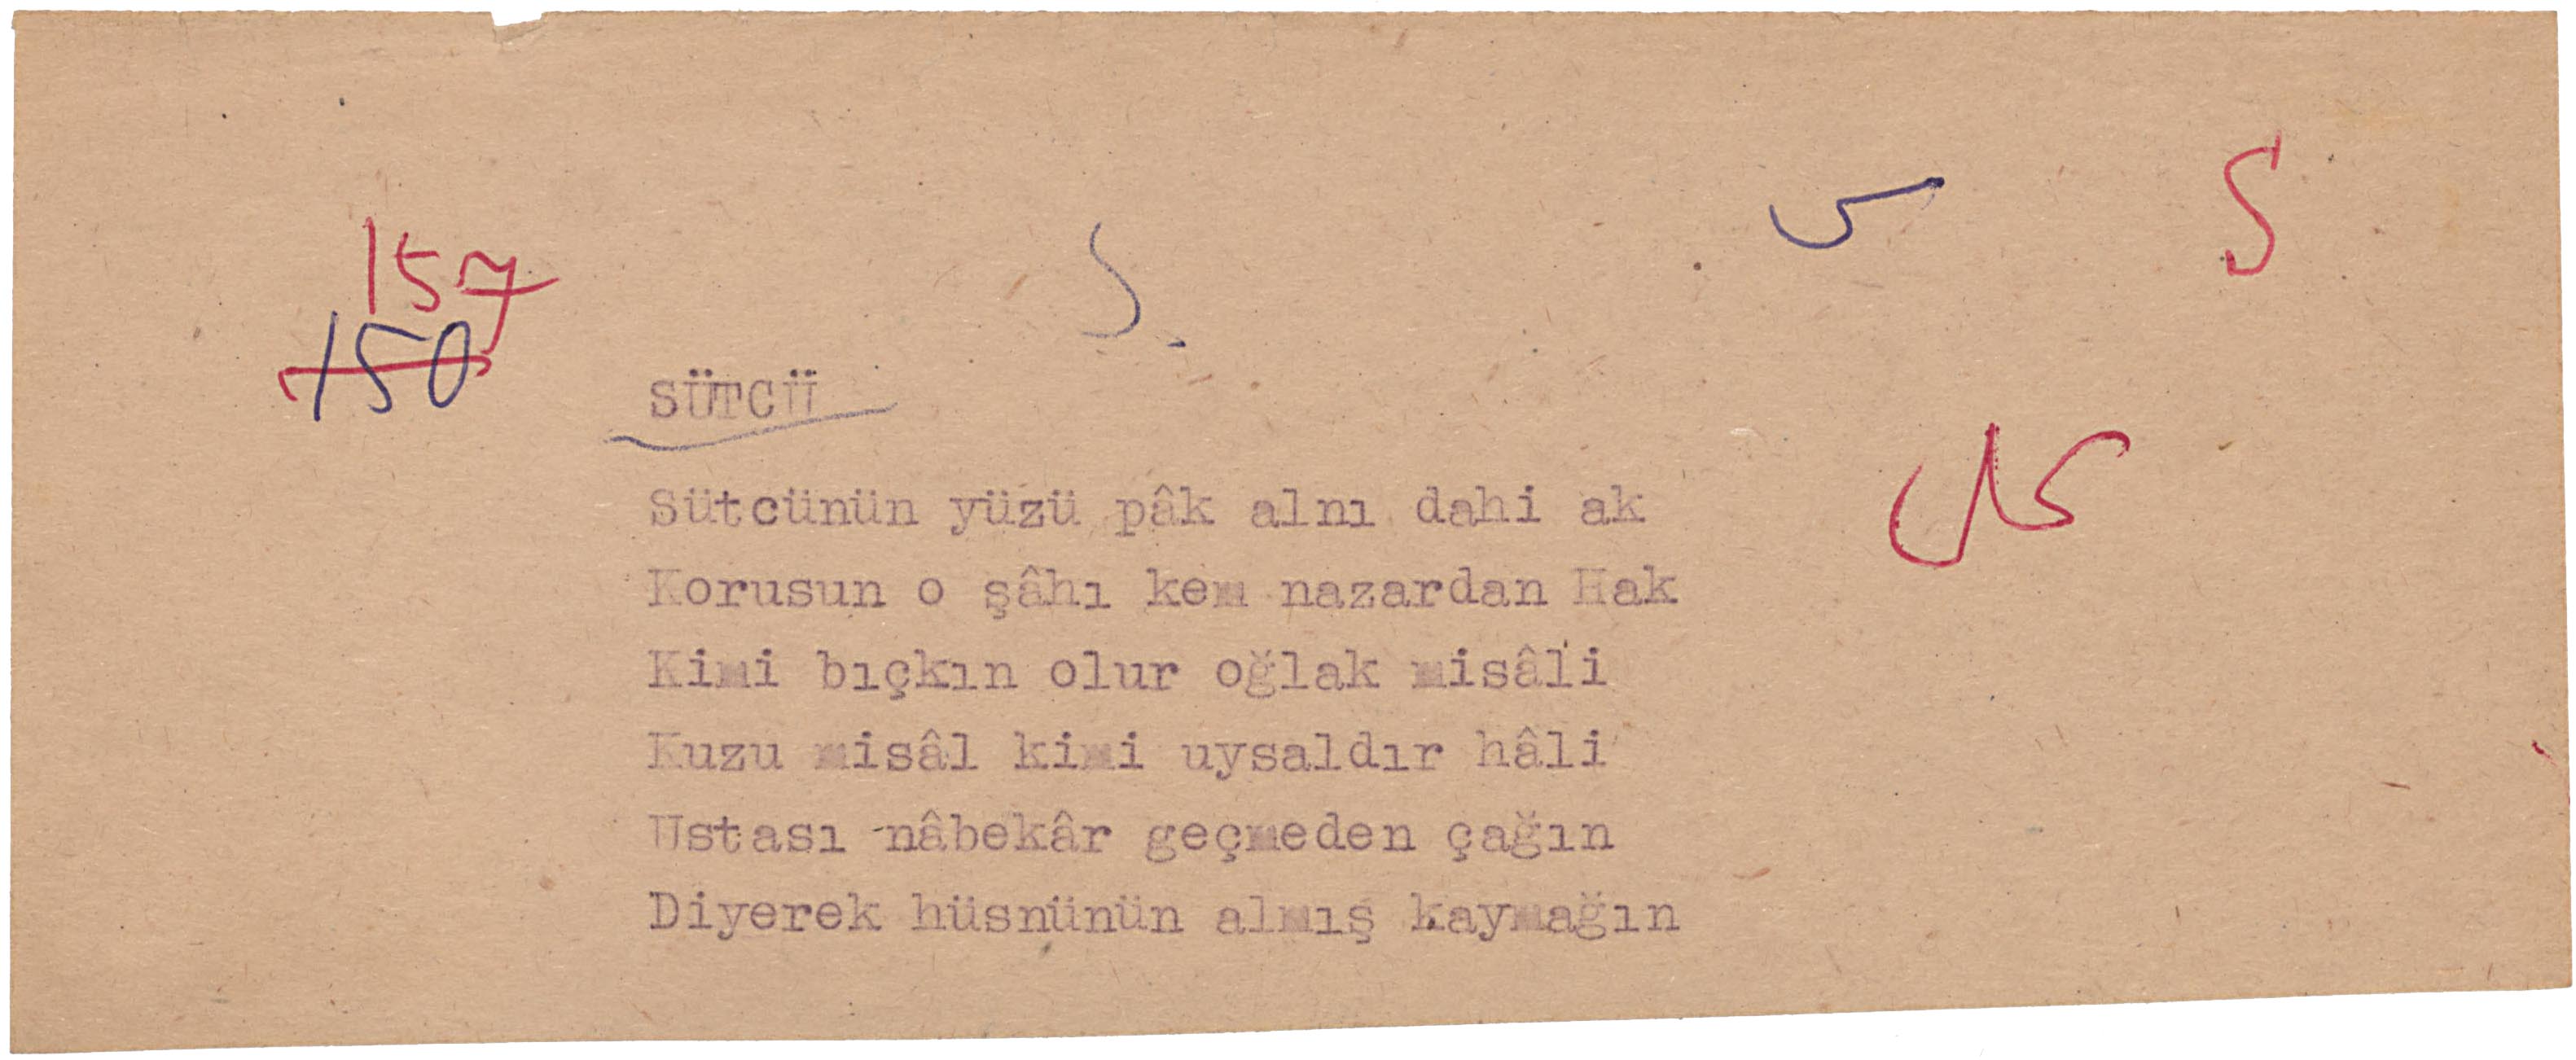 S
157
150
S.
SÜTCÜ
Sütcünün yüzü pâk alnı dahi ak
Korusun o şâhı kem nazardan Hak
Kimi bıçkın olur oğlak misâli
Kuzu misâl kimi uysaldır hâli
Ustası nâbekâr geçmeden çağın
Diyerek hüsnünün almış kaymağın